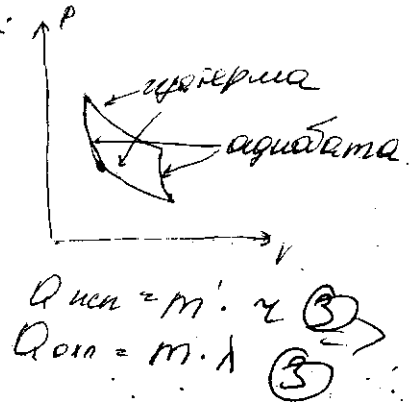 P
изотерма
адиабата
V
Q исп = m' · r ③
Q охл = m · λ ③